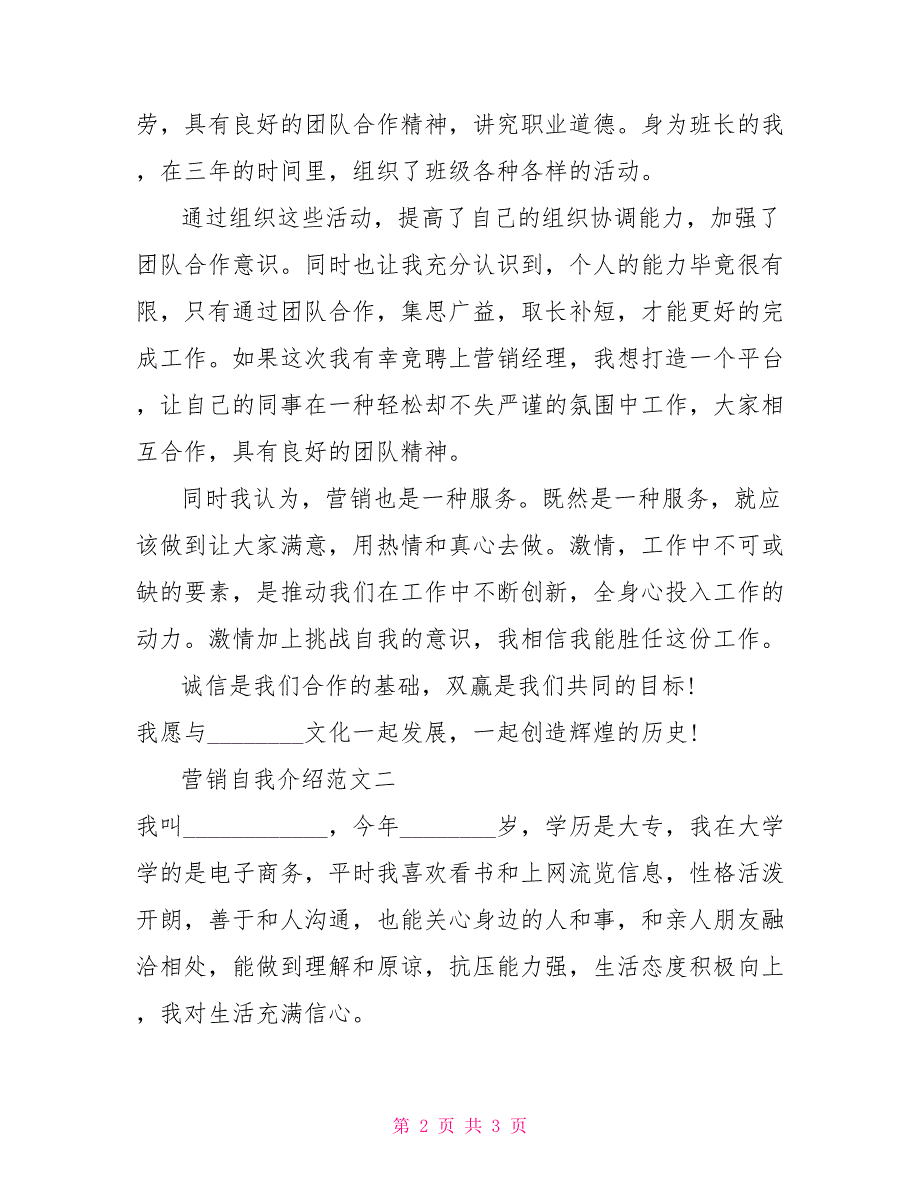 劳，具有良好的团队合作精神，讲究职业道德。身为班长的我
，在三年的时间里，组织了班级各种各样的活动。
通过组织这些活动，提高了自己的组织协调能力，加强了
团队合作意识。同时也让我充分认识到，个人的能力毕竟很有
限，只有通过团队合作，集思广益，取长补短，才能更好的完
成工作。如果这次我有幸竞聘上营销经理，我想打造一个平台
，让自己的同事在一种轻松却不失严谨的氛围中工作，大家相
互合作，具有良好的团队精神。
同时我认为，营销也是一种服务。既然是一种服务，就应
该做到让大家满意，用热情和真心去做。激情，工作中不可或
缺的要素，是推动我们在工作中不断创新，全身心投入工作的
动力。激情加上挑战自我的意识，我相信我能胜任这份工作。
诚信是我们合作的基础，双赢是我们共同的目标!
我愿与________文化一起发展，一起创造辉煌的历史!
营销自我介绍范文二
我叫____________，今年________岁，学历是大专，我在大学
学的是电子商务，平时我喜欢看书和上网流览信息，性格活泼
开朗，善于和人沟通，也能关心身边的人和事，和亲人朋友融
洽相处，能做到理解和原谅，抗压能力强，生活态度积极向上
，我对生活充满信心。
第 2 页 共 3 页